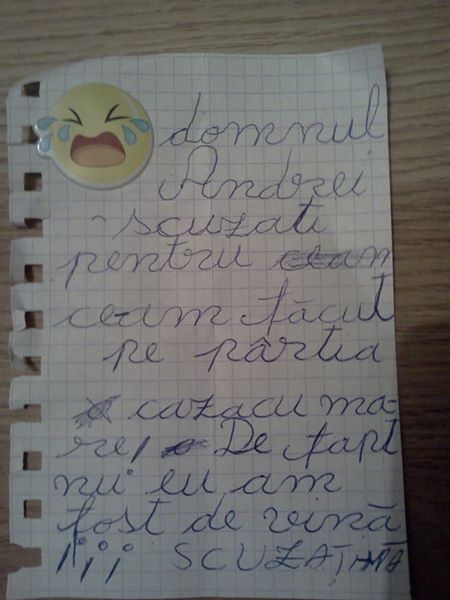 domnul
Andrei
scuzati
pentru
ceam făcut
pe pârtia
cazacu ma-
re, De fapt
nu eu am
fost de vină
¡¡¡¡ SCUZAȚIMĂ